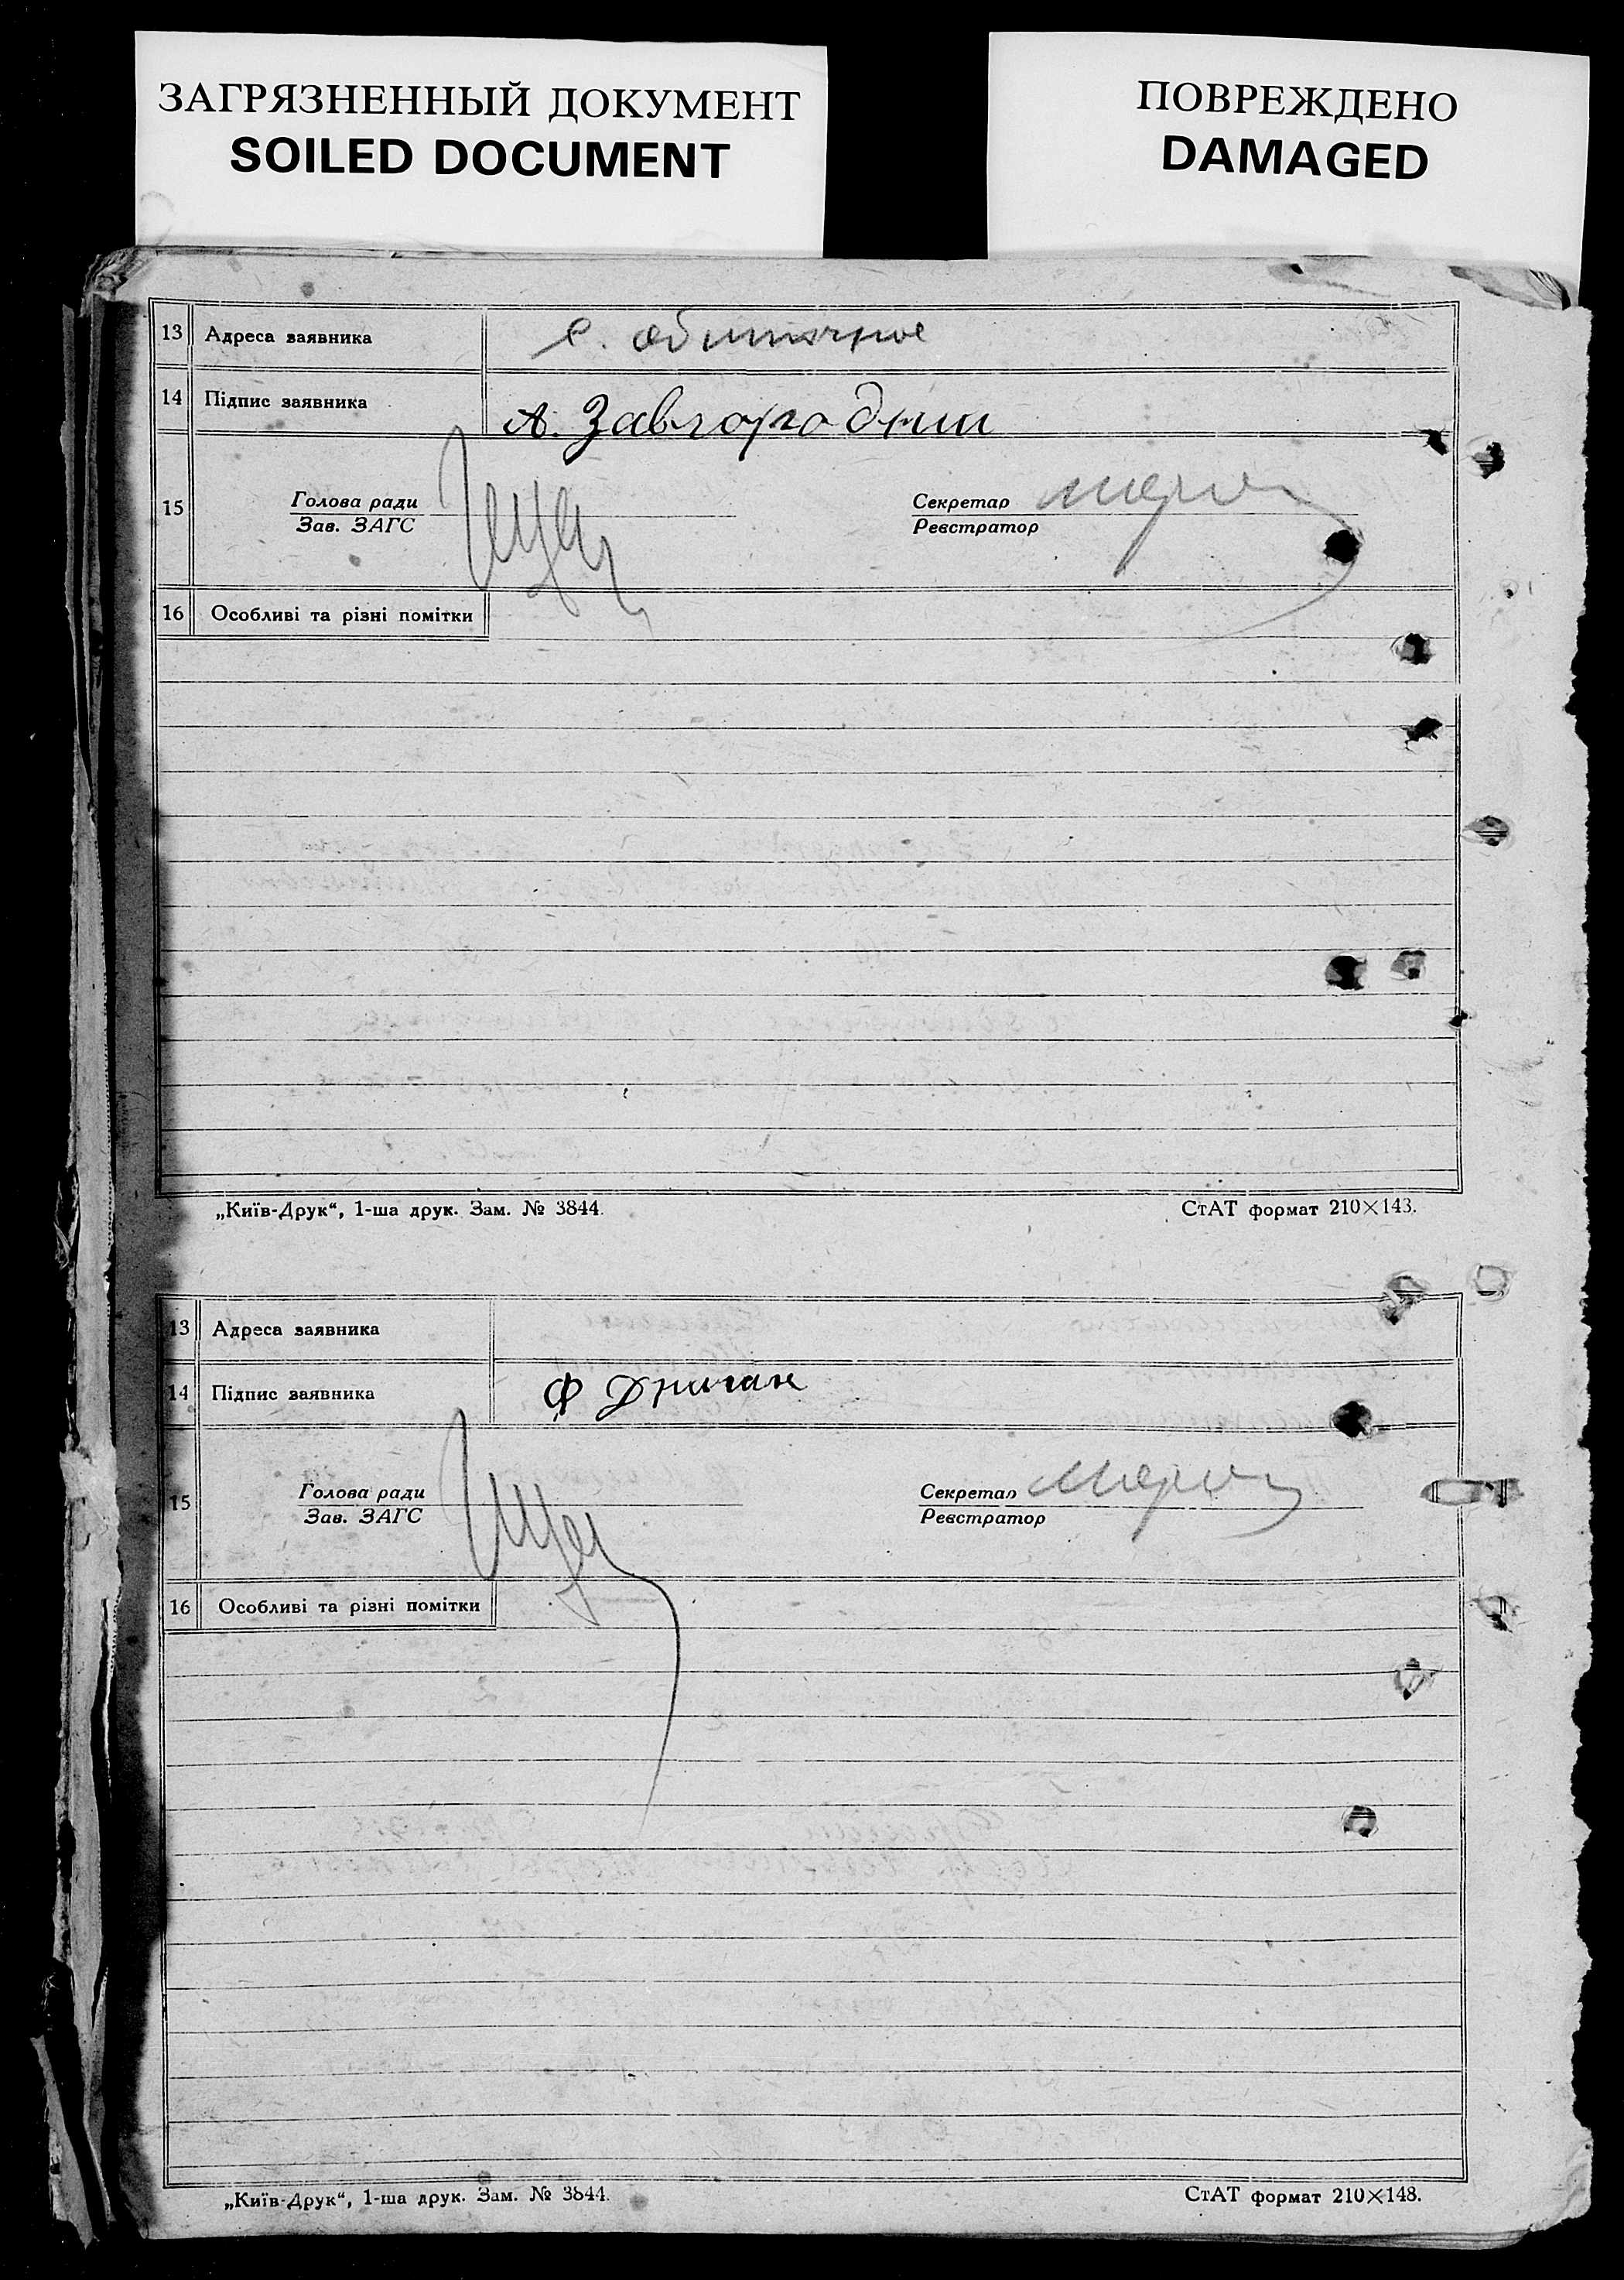 ЗАГРЯЗНЕННЫЙ ДОКУМЕНТ
SOILED DOCUMENT
ПОВРЕЖДЕНО
DAMAGED
13 Адреса заявника с. обиточное
14 Підпис заявника А. Завгородний
15 Голова ради Секретар
Зав. ЗАГС Реєстратор
16 Особливі та різні помітки
„Київ-Друк“, 1-ша друк. Зам. № 3844. СтАТ формат 210×143.
13 Адреса заявника
14 Підпис заявника Ф Дриган
15 Голова ради Секретар
Зав. ЗАГС Реєстратор
16 Особливі та різні помітки
„Київ-Друк“, 1-ша друк. Зам. № 3844. СтАТ формат 210×148.